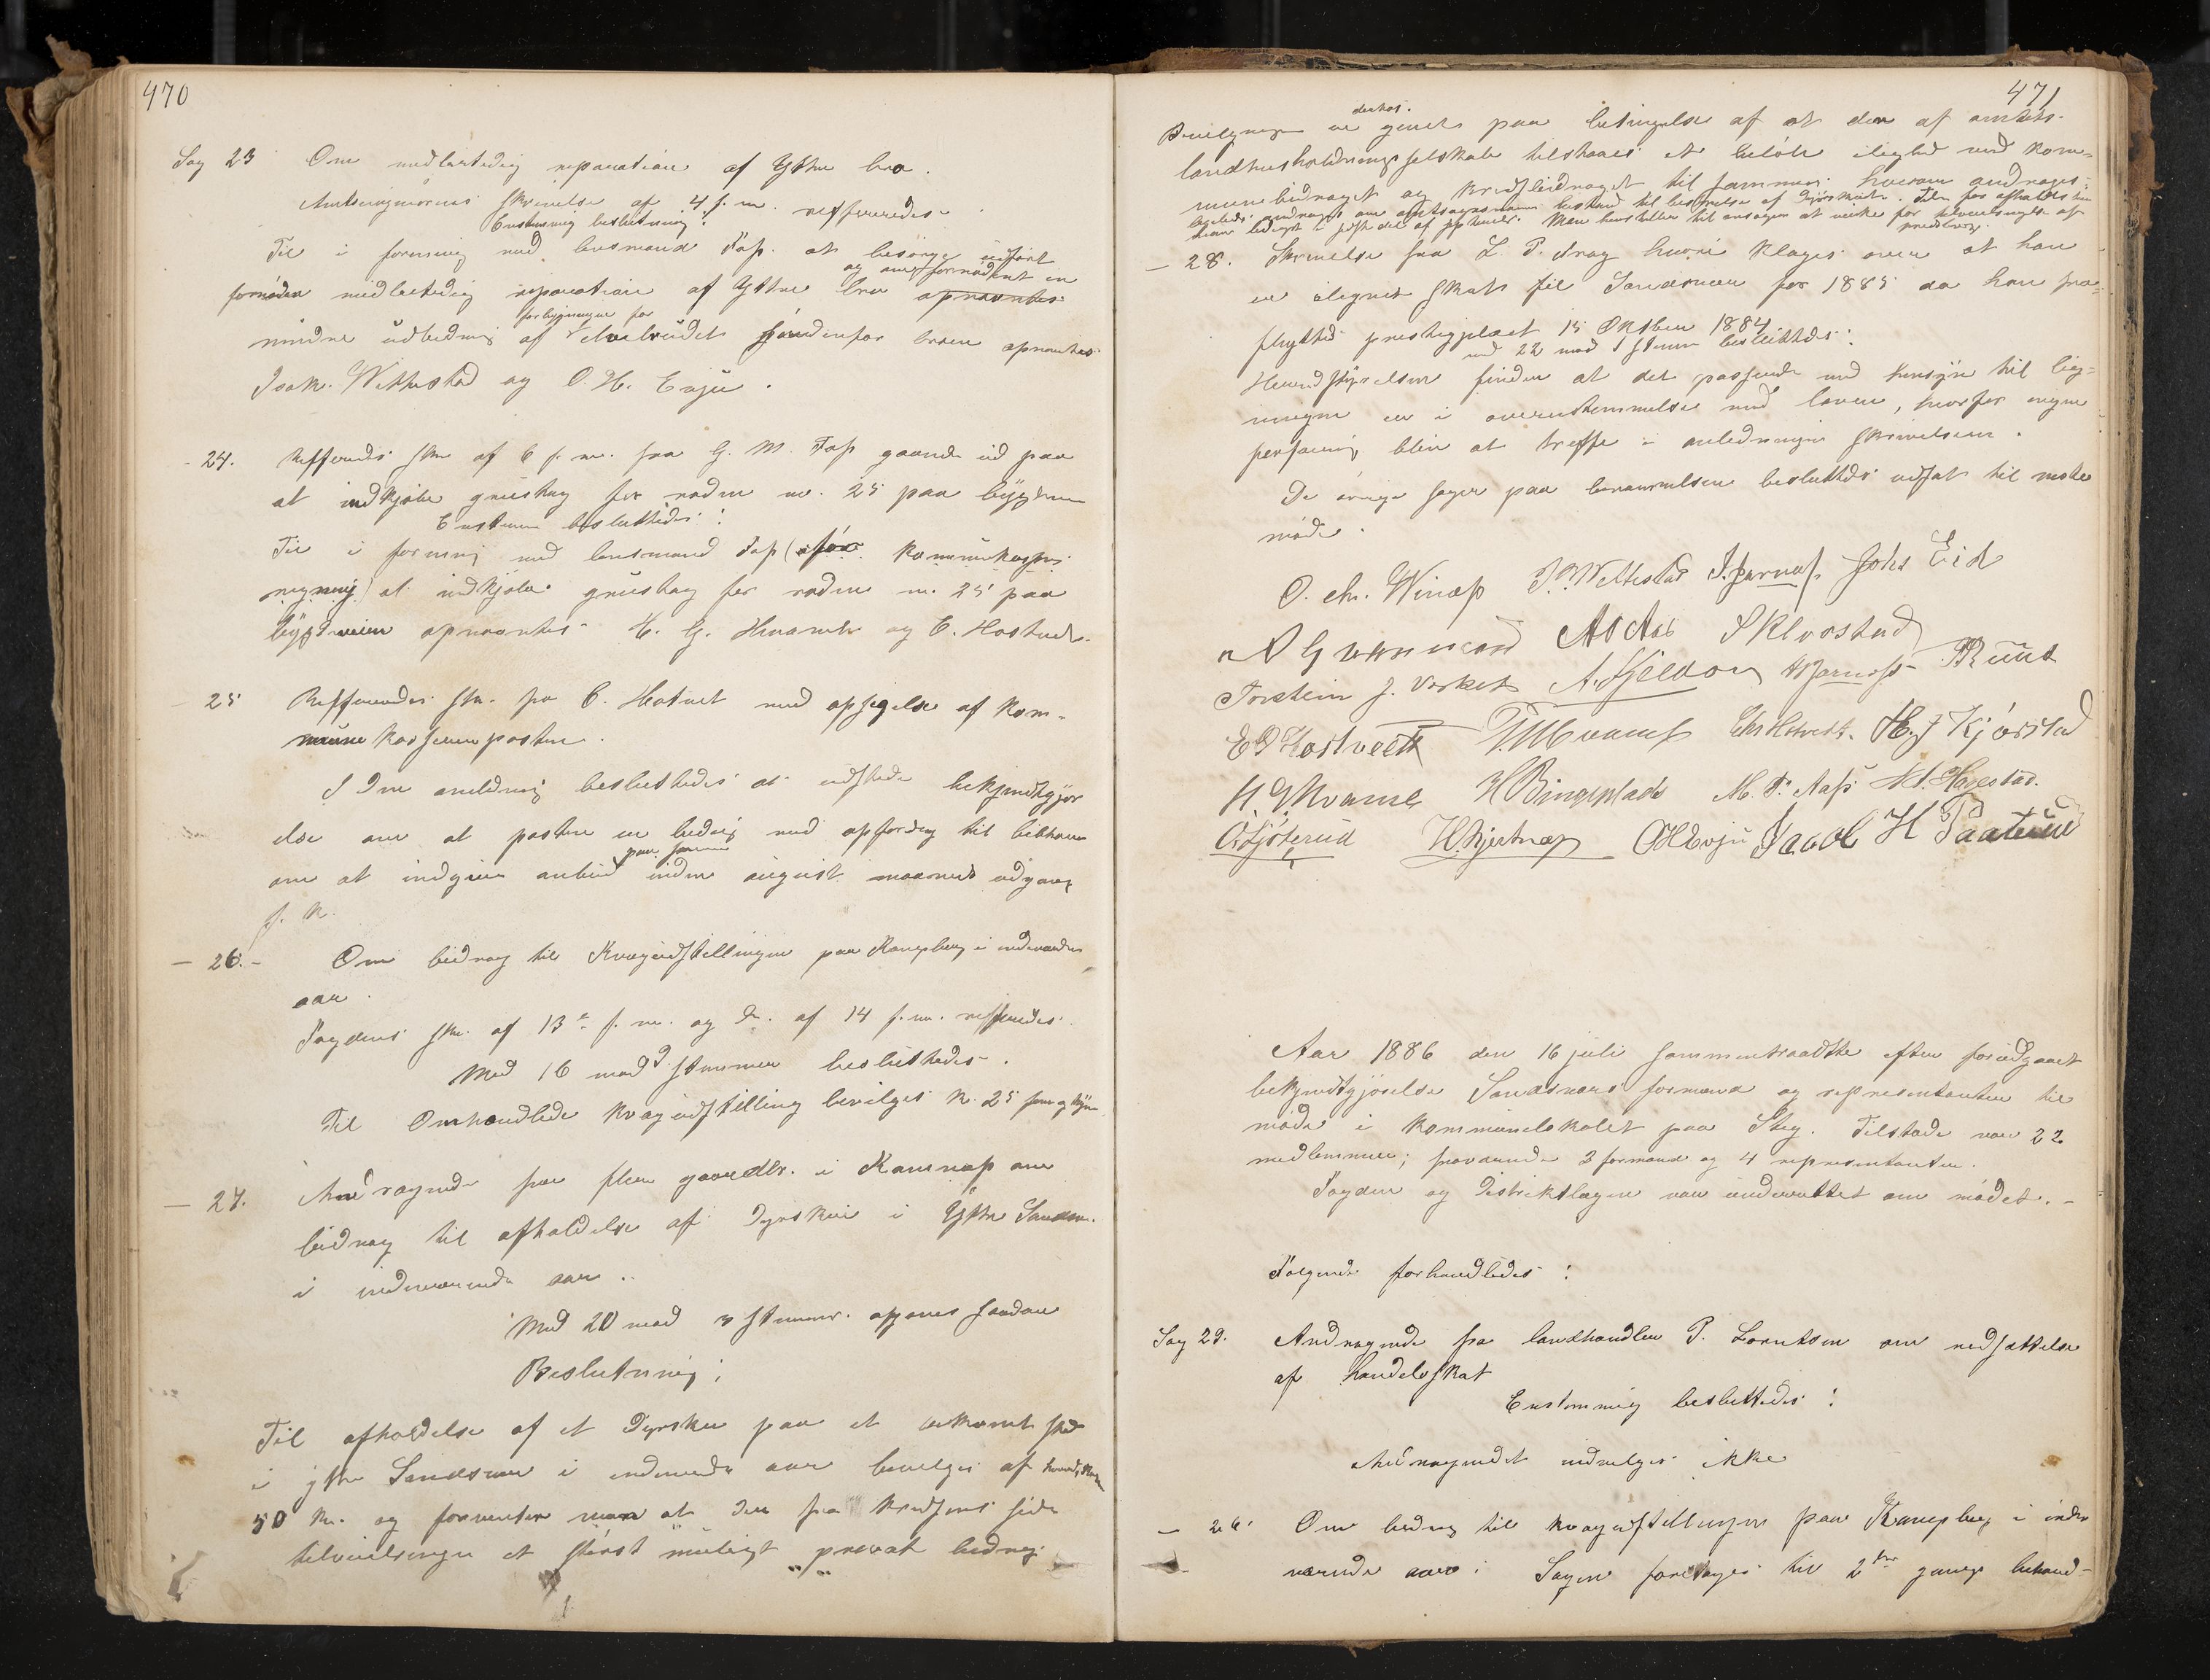 470
Sag 23 Om midlertidig reparation af Ytre bro.
Amtsingniørens skrivelse af 4 f. m. reffereredes.
Enstemmig beslutning:
Til i forening med lensmand Fass at besørge udført
og ang fornødent en
fornøden midlertidig reparation af Ytre bro opnævntes
forbygninger for
mindre udbedring af elvebrudet søndenfor broen opnævntes
Isak Wettestad og O. H. Evju.
- 24. Reffereredes skr. af 6 f. m. fra G. M. Fass gaaende ud paa
at indkjøbe grustag for roden no. 25 paa bygdeveien
Enstemmig besluttedes:
Til i forening med lensmand Fass (for kommunekassens
regning) at indkjøbe grustag for roden no. 25 paa
bygdeveien opnævntes H. G. Hvamb og E. Hostvedt.
- 25 Reffereredes skr. fra C. Hostvet med opsigelse af kom-
munekasserer posten.
I den anledning besluttedes at udstede bekjendtgjør
else om at posten er ledig med opfordring til liebhavere
paa samme
om at indgive anbud inden august maaneds udgang
f. k.
- 26. - Om bidrag til Kvægudstillingen paa Kongsberg i indeværende
aar.
Fogdens skr. af 13de f. m. og do. af 14 f. m. reffereredes.
Med 16 mod 9 stemmer besluttedes.
Til Omhandlede kvægudstilling bevilges kr. 25 fem og tyve
- 27. Andragende fra flere gaardbr. i Komnæs om
bidrag til afholdelse af Dyrskue i Ytre Sandsv.
i indeværende aar..
Med 20 mod 3 stemmer. afgaves saadan
Beslutning;
Til afholdelse af et Dyrskue paa et bekvemt sted
i ytre Sandsvær i indeværende aar bevilges af
50 kr. og forventer man at der fra kredsens side
tilveiebringes et størst muligt privat bidrag
471
derhos.
Bevilgningen er givet paa betingelse af at der af amtets
landhusholdningsselskab tilstaaes et beløb ligt med kom-
munebidraget og kredsbidraget til sammen hvorom andrages;
- 28. Skrivelse fra L. P. Krag hvori klages over at han
er ilignet skat til Sandsvær for 1885 da han fra-
flyttede prestegjeldet 15 Oktober 1884
med 22 mod 1 stemme besluttedes:
Herredstyrelsen finder at det passerede med hensyn til lig-
ningen er i overenstemmelse med loven, hvorfor ingen
forføining bliver at treffe i anledningen skrivelsen.
De øvrige sager paa berammelsen besluttedes udsat til neste
møde.
O. Chr. Winæss J. Wettestad J. Jarnæss Johs Eid
A G vammen A O Aas S Klorstad
Torstein J. Vasket A. Gjeldon H Jarnæss P. Ruud
E P Hostvedt T. M Hvamb Chr Hotvedt. H. J Kjørstad
H. G. Hvamb H Bingeplads M. P. Aass N. A. Hagestad.
O Gjøterud H. hjertnæss O H Evju Jacob H Taaterud
Aar 1886 den 16 juli sammentraadte efter forudgaaet
bekjendtgjørelse Sandsværs formænd og representanter til
møde i kommunelokalet paa Steg. Tilstede var 22
medlemmer; fraværende 2 formænd og 4 representanter.
Fogden og Distriktslægen var underrettet om mødet. -
Følgende forhandledes:
Sag 29. Andragende fra landhandler P. Lorentsen om nedsættelse
af handelsskat
Enstemmig besluttedes:
Andragendet indvilges ikke
- 26. Om bidrag til kvægudstillingen paa Kongsberg i inde
værende aar. Sagen foretages til 2den gangs behand-